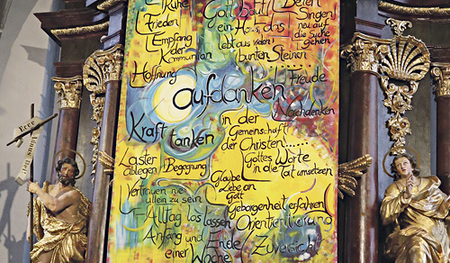 Ruhe
Frieden
Empfang
der
Kommunion
Hoffnung
Gott
Beten
Singen
ein Haus, das
neu auf
lebt aus vielen
die Suche
gehen
bunten Steinen
Freude
aufdanken
Nachdenken
Kraft tanken
in der
Gemeinschaft
der Christen....
Gottes Worte
in die Tat umsetzen
Laster
ablegen
Begegnung
Glaube
Liebe an
Gott
Vertrauen nie
allein zu sein
Geborgenheit erfahren
Alltag los lassen
Orientierung
Anfang und Ende
einer Woche
Zuversicht
Ecce